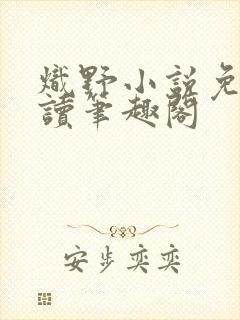 熾野小說免
讀筆趣閣
安步奕奕